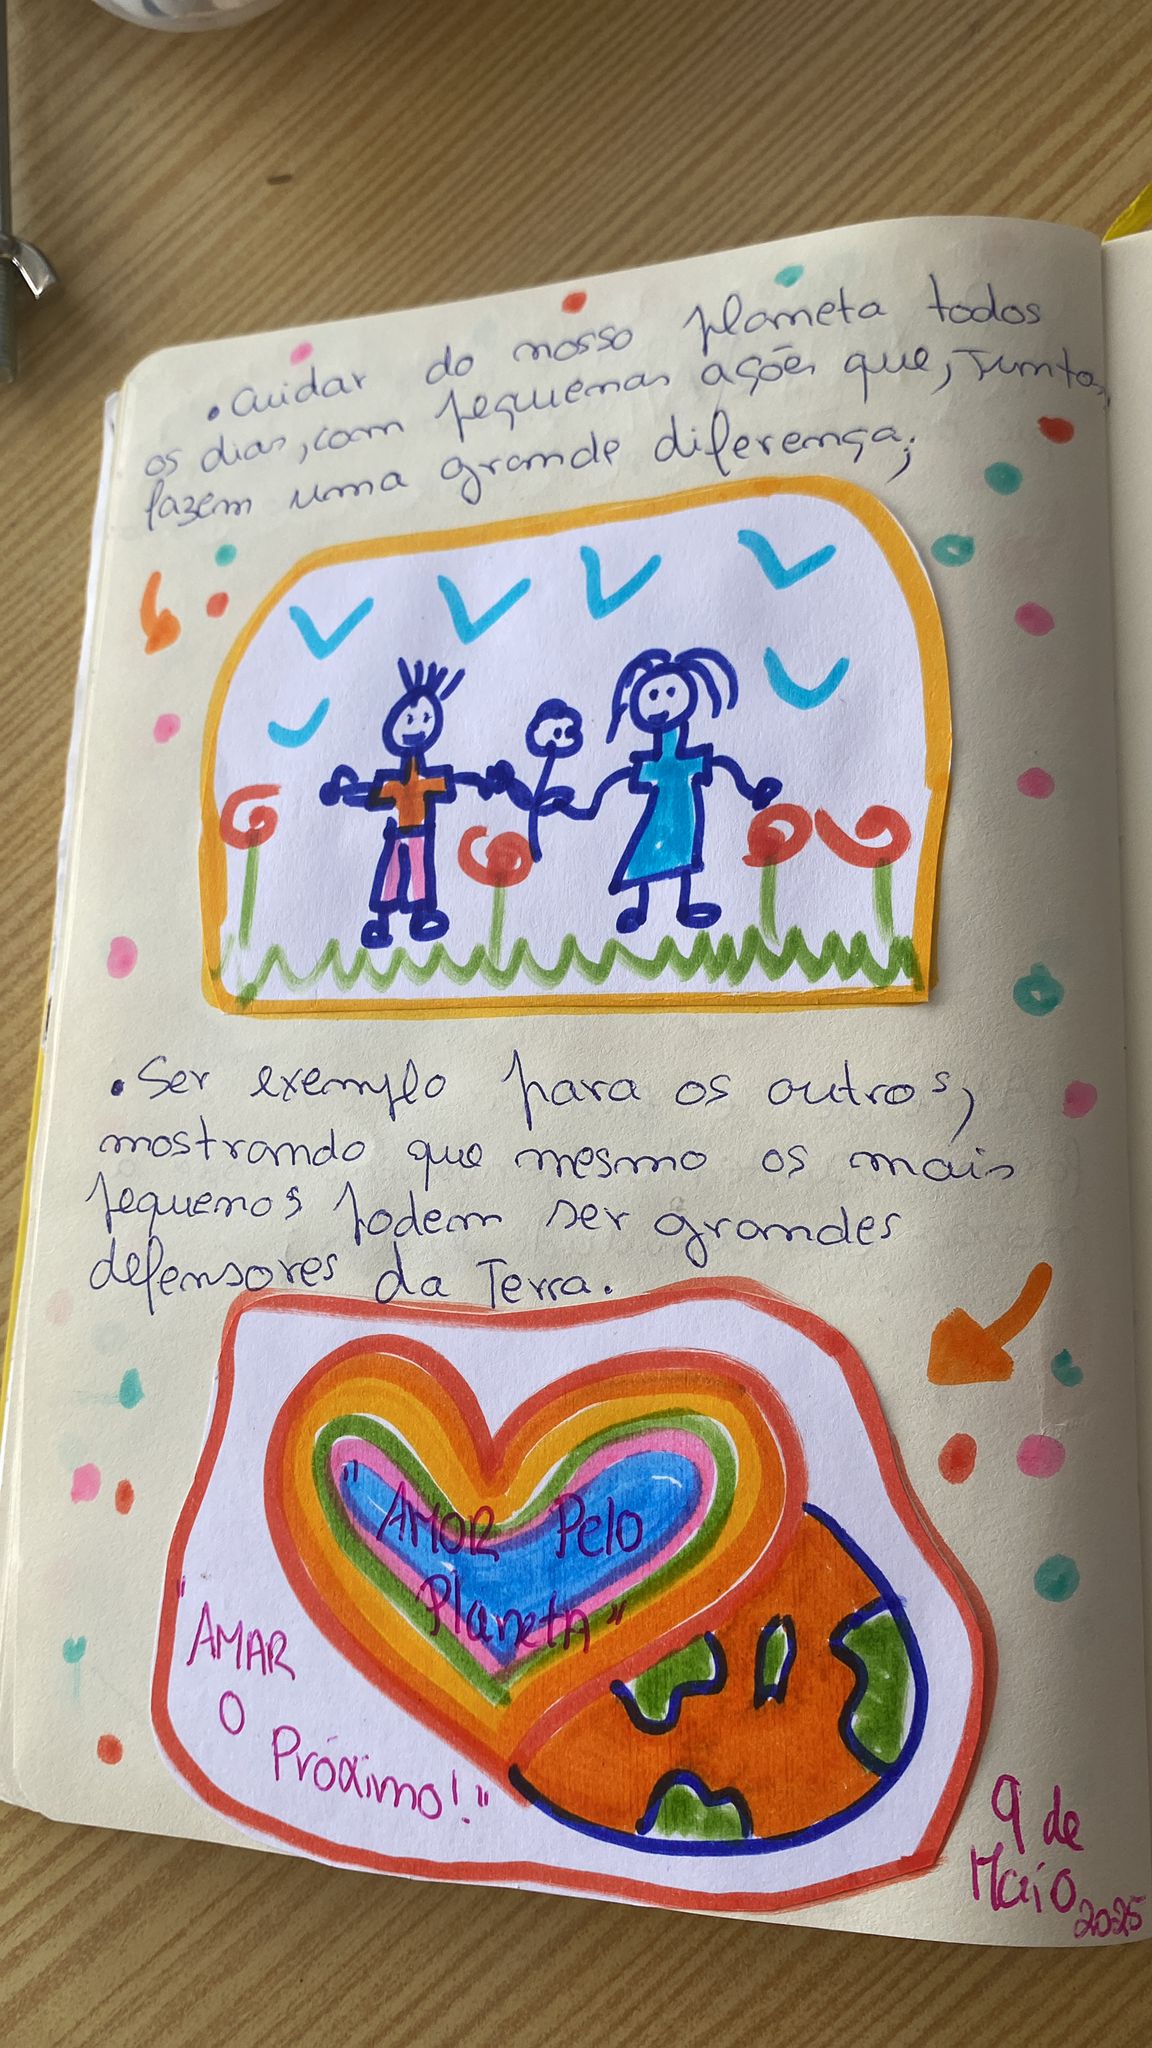 • Cuidar do nosso planeta todos
os dias, com pequenas ações que, juntas,
fazem uma grande diferença;
• Ser exemplo para os outros,
mostrando que mesmo os mais
pequenos podem ser grandes
defensores da Terra.
"AMOR Pelo
PlanetA"
"AMAR
O
Próximo!"
9 de
Maio
2025